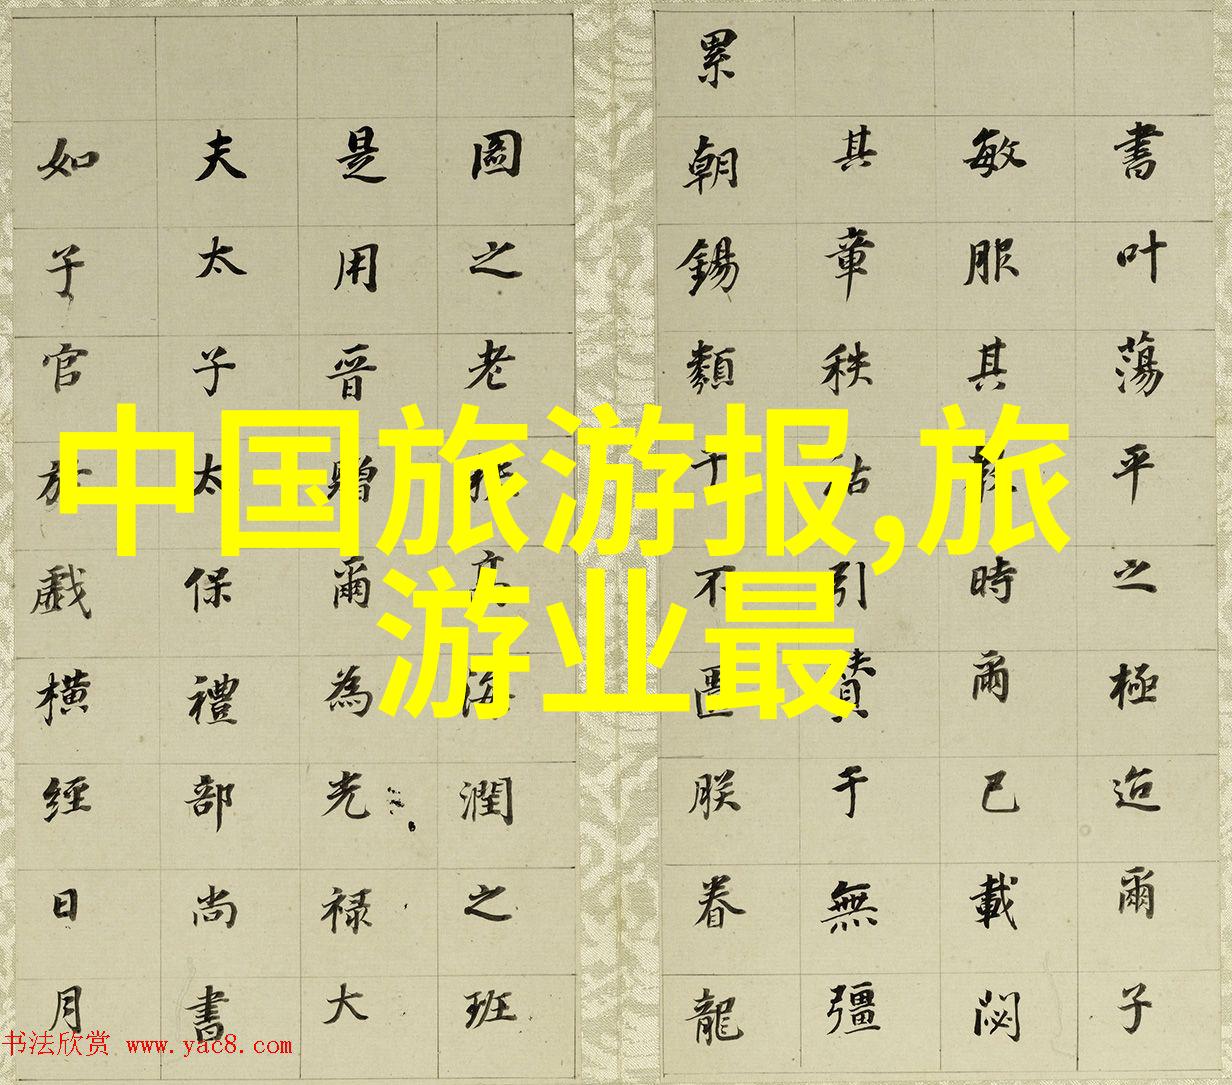 中国旅游报,旅
游业最
書叶蕩平之極迨爾子
敏服其時爾已載閟
其章秩引賛于無彊
累朝錫類于不匱朕眷龍
圖之老海潤之班
是用晋贈爾為光禄大
夫太子太保禮部尚書
如子官於戲橫經日月
书法欣赏 www.yac8.com